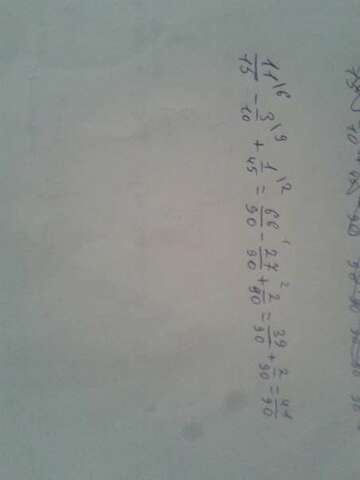 11\6/15 - 3\9/10 + 1\2/45 = 66/90 - 27/90 + 2/90 = 39/90 + 2/90 = 41/90